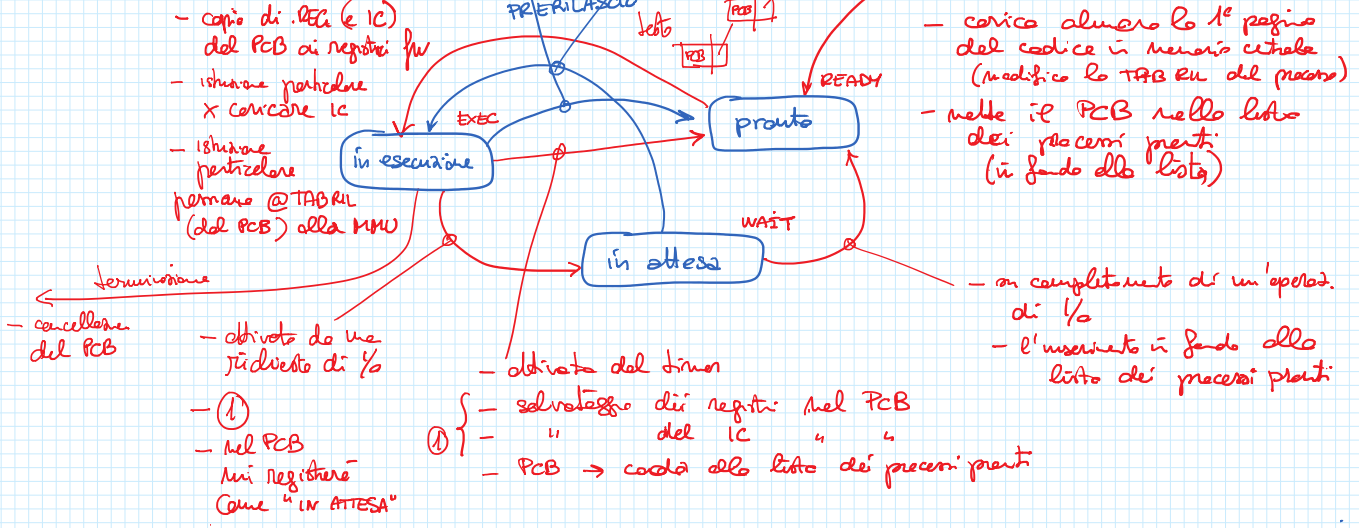 - copia di .REG (e IC)
del PCB ai registri fw
- istruzione particolare
x caricare IC
- istruzione
particolare
@TABRIL
(dal PCB) alla MMU
PRERILASCIO
testa
PCB
PCB
READY
- carica almeno la 1ª pagina
del codice in memoria centrale
(modifica la TAB RIL del processo)
- mette il PCB nella lista
dei processi pronti
(in fondo alla lista)
EXEC
pronto
in esecuzione
WAIT
in attesa
terminazione
- cancellazione
del PCB
- attivato da una
richiesta di I/O
- 1
- nel PCB
mi registrerò
come "IN ATTESA"
- attivata dal timer
1 - salvataggio dei registri nel PCB
- " del IC " "
- PCB → coda alla lista dei processi pronti
- completamento di un'operaz.
di I/O
- l'inserimento in fondo alla
lista dei processi pronti